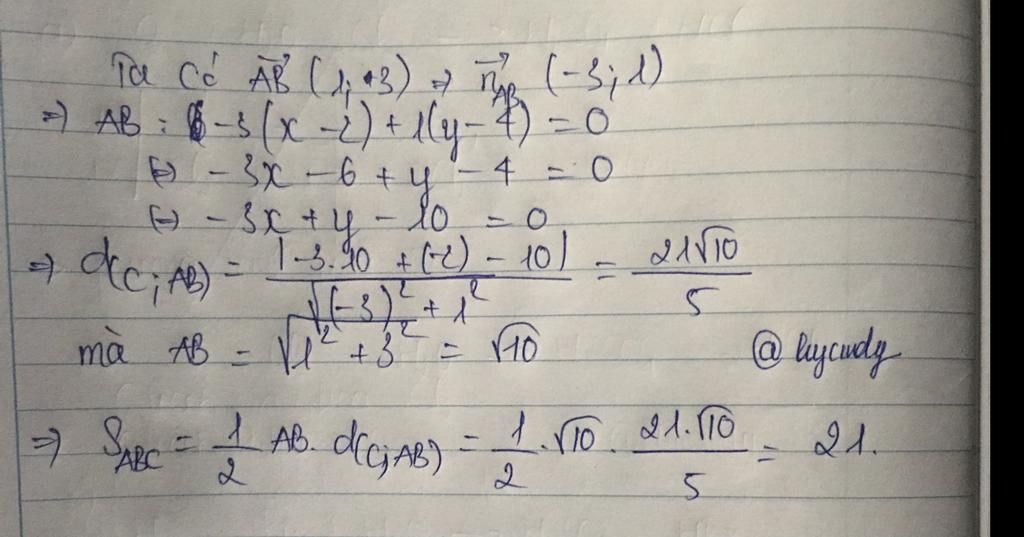 Ta có \vec{AB} (1; 3) => \vec{n}_{AB} (-3; 1)
=> AB : -3(x - 2) + 1(y - 4) = 0
(=) -3x - 6 + y - 4 = 0
(=) -3x + y - 10 = 0
=> d(C; AB) = \frac{|-3.10 + (-2) - 10|}{\sqrt{(-3)^2 + 1^2}} = \frac{21\sqrt{10}}{5}
mà AB = \sqrt{1^2 + 3^2} = \sqrt{10}
=> S_{ABC} = \frac{1}{2} AB. d(C; AB) = \frac{1}{2} . \sqrt{10} . \frac{21.\sqrt{10}}{5} = 21.